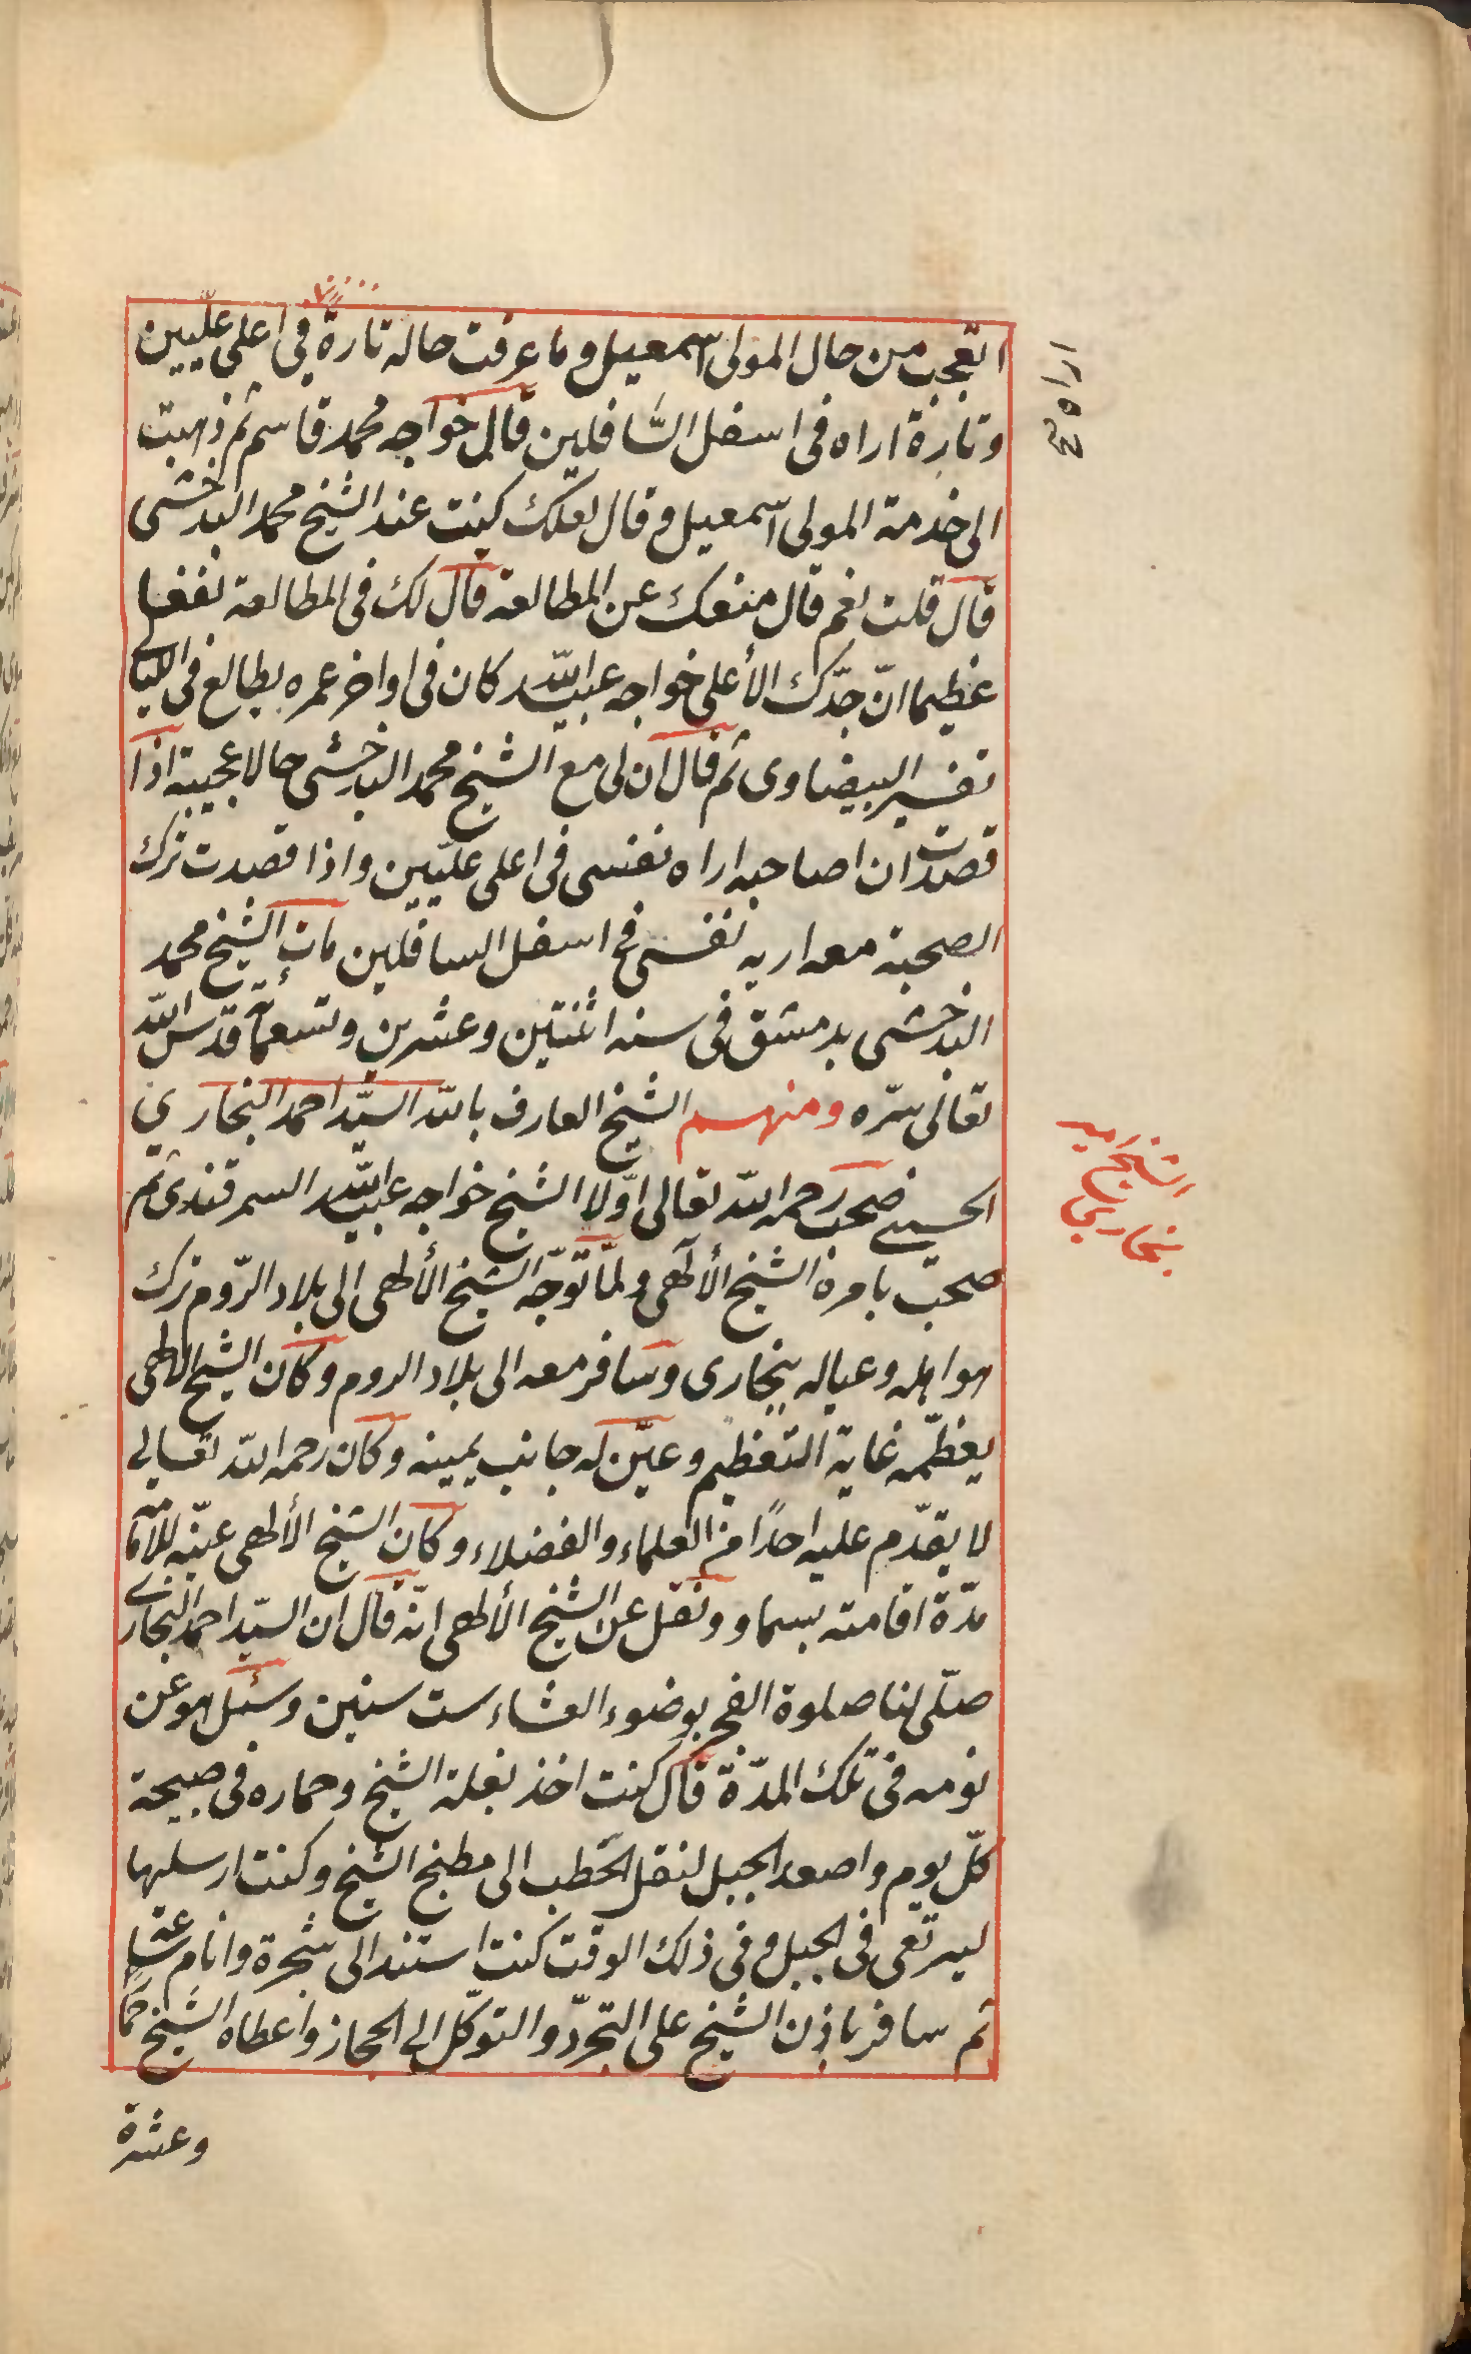 اتعجب من حال المولى اسمعيل وما عرفت حاله تارة في اعلى عليين
اراه صح
وتارة اراه في اسفل السّافلين قال خواجه محمد قاسم ثم ذهبت
الى خدمة المولى اسمعيل وقال لعلك كنت عند الشيخ محمد البدخشى
قال قلت نعم قال منعك عن المطالعة قال لك في المطالعة نفعا
عظيما انّ جدّك الأعلى خواجه عبيد اللّه كان في اواخر عمره يطالع في الليالى
تفسير البيضاوى ثم قال ان لى مع الشيخ محمد البدخشى حالا عجيبة اذا
قصدت ان اصاحبه اراه نفسى في اعلى عليّين واذا قصدت ترك
الصحبة معه اريه نفسى في اسفل السافلين مات الشيخ محمد
البدخشى بدمشق في سنه اثنتين وعشرين وتسعمأئة قدّس اللّه
تعالى سرّه ومنهم الشيخ العارف باللّه السيّد احمد البخاري
الشيخ امير
بخاري
الحسينى صحب رحمه اللّه تعالى اوّلا الشيخ خواجه عبيد اللّه السمرقندى ثم
صحب بامره الشيخ الألهى ولمّا توجّه الشيخ الألهى الى بلاد الرّوم ترك
هو اهله وعياله ببخارى وسافر معه الى بلاد الروم وكان الشيخ الالهى
يعظّمه غاية التعظيم وعيّن له جانب يمينه وكان رحمه اللّه تعالى
لا يقدّم عليه احدًا من العلماء والفضلاء وكان الشيخ الألهى عيّنه للأمامة
مدّة اقامته بسماو ونقل عن الشيخ الألهى انّه قال ان السيّد احمد البخارى
صلّى لنا صلوة الفجر بوضوء العشاء ست سنين وسئل هو عن
نومه في تلك المدّة قال كنت اخذ بغلة الشيخ وحماره في صبيحة
كلّ يوم واصعد الجبل لنقل الحطب الى مطبخ الشيخ وكنت ارسلها
ليرتعى في الجبل وفي ذلك الوقت كنت استند الى شجرة وانام ساعة
ثم سافر باذن الشيخ على التجرّد والتوكّل الى الحجاز واعطاه الشيخ حمارا
وعشرة